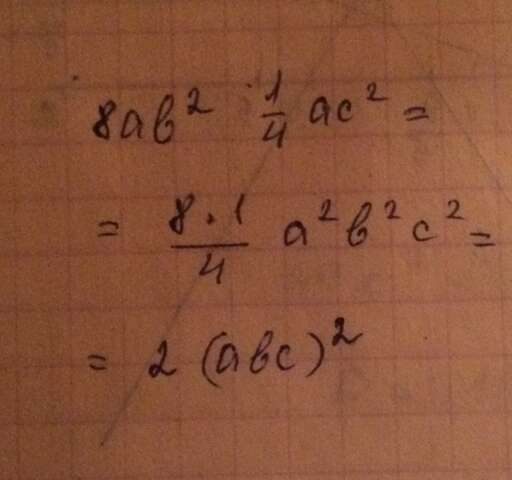 8ab² · 1/4 ac² =
= 8·1/4 a²b²c² =
= 2 (abc)²